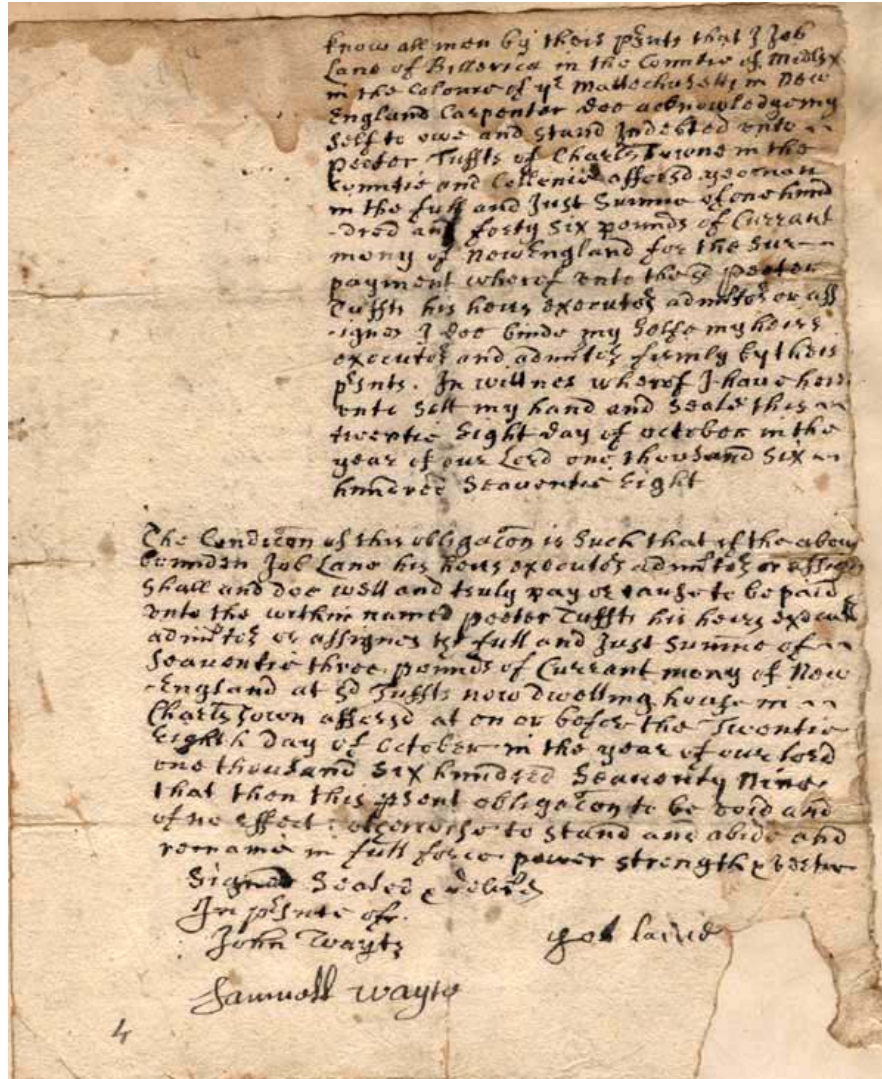 Know all men by theis psents that I Job
Lane of Billerica in the Countie of Midlsx
in the Colonie of ye Mattechusetts in New
England Carpenter doe acknowledge my
self to owe and stand Indebted unto
Peeter Tuffts of Charlstowne in the
Countie and Collonie afforsd yeoman
in the full and Just Summe of one hund
-dred and forty Six pounds of Currant
mony of New England for the Sur-
payment wherof unto the sd Peeter
Tuffts his heirs executors admitors or ass
-ignes I doe binde my Selfe my heirs
executors and admitors firmly by theis
psnts. In wittnes wherof I have here
unto Sett my hand and Seale this
twentie Eight day of october in the
year of our Lord one thousand Six
hundred Seaventie Eight
The Condicon of this obligacon is Such that if the above
bounden Job Lane his heirs executors admitors or assigns
Shall and doe well and truly pay or cause to be paid
unto the within named peeter Tuffts his heirs
admitors or assignes the full and Just Summe of
Seaventie three pounds of Currant mony of New
-England at sd Tuffts now dwelling house in
Charlstown afforsd at on or before the Twentie
Eighth Day of October in the year of our lord
one thousand Six hundred Seavenity Nine
that then this psent obligacon to be void and
of no effect: otherwise to stand and abide and
remaine in full force power strength & vertue
Signed Sealed & delivrd
In psents of
John Wayte
Job laine
Samuell Wayte
4